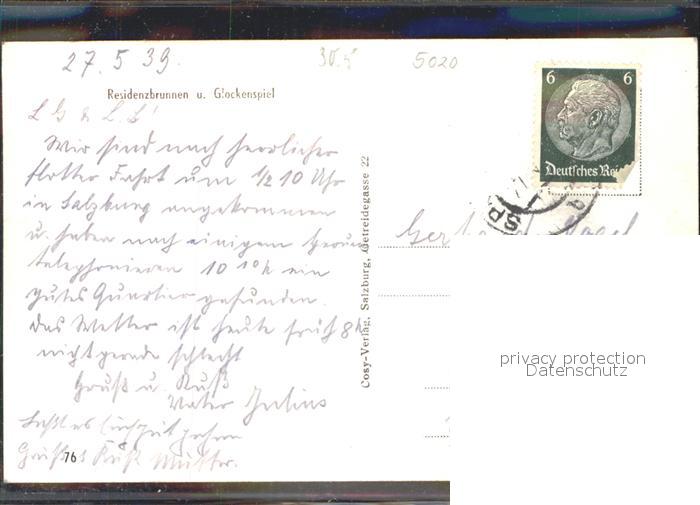 27. 5 39.
30.5
5020
Residenzbrunnen u. Glockenspiel
6 6
Deutsches Rei
L G & L. L!
Wir sind nach herrlicher
flotter Fahrt um 1/2 10 Uhr
in Salzburg angekommen
u. haben nach einigem herum
telephonieren 10 10 h ein
gutes Quartier gefunden.
Das Wetter ist heute früh 8h
nicht gerade schlecht
Gruß u. Kuß
Vater Julius
Laßt es Euch gut gehen
Kuß Mutter.
76
Cosy-Verlag, Salzburg, Getreidegasse 22
privacy protection
Datenschutz